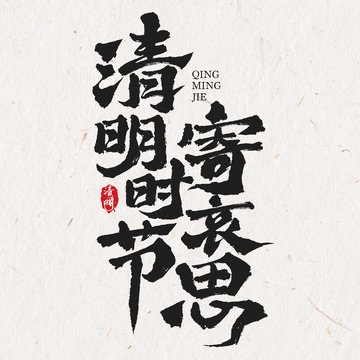 清明时节
寄哀思
QING
MING
JIE
清明